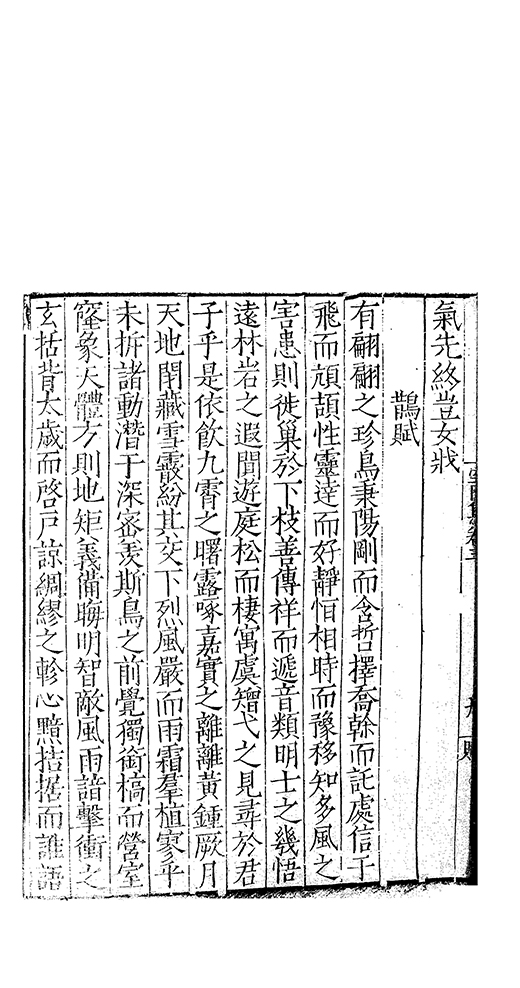 氣先終豈女戕
鵲賦
有翩翩之珍鳥秉陽剛而含哲擇喬榦而託處信于
飛而頏頡性靈達而好靜恒相時而豫移知多風之
害患則徙巢於下枝善傳祥而遞音類明士之幾悟
遠林岩之遐閒遊庭松而棲寓虞矰弋之見尋於君
子乎是依飲九霄之曙露啄嘉實之離離黃鍾厥月
天地閉藏雪霰紛其交下烈風嚴而雨霜羣植寥乎
未拆諸動潛于深密羡斯鳥之前覺獨銜槁而營室
窿象天體方則地矩義備晦明智敵風雨諳擊衝之
玄括背太歲而啓戶諒綢繆之軫心黯拮据而誰語